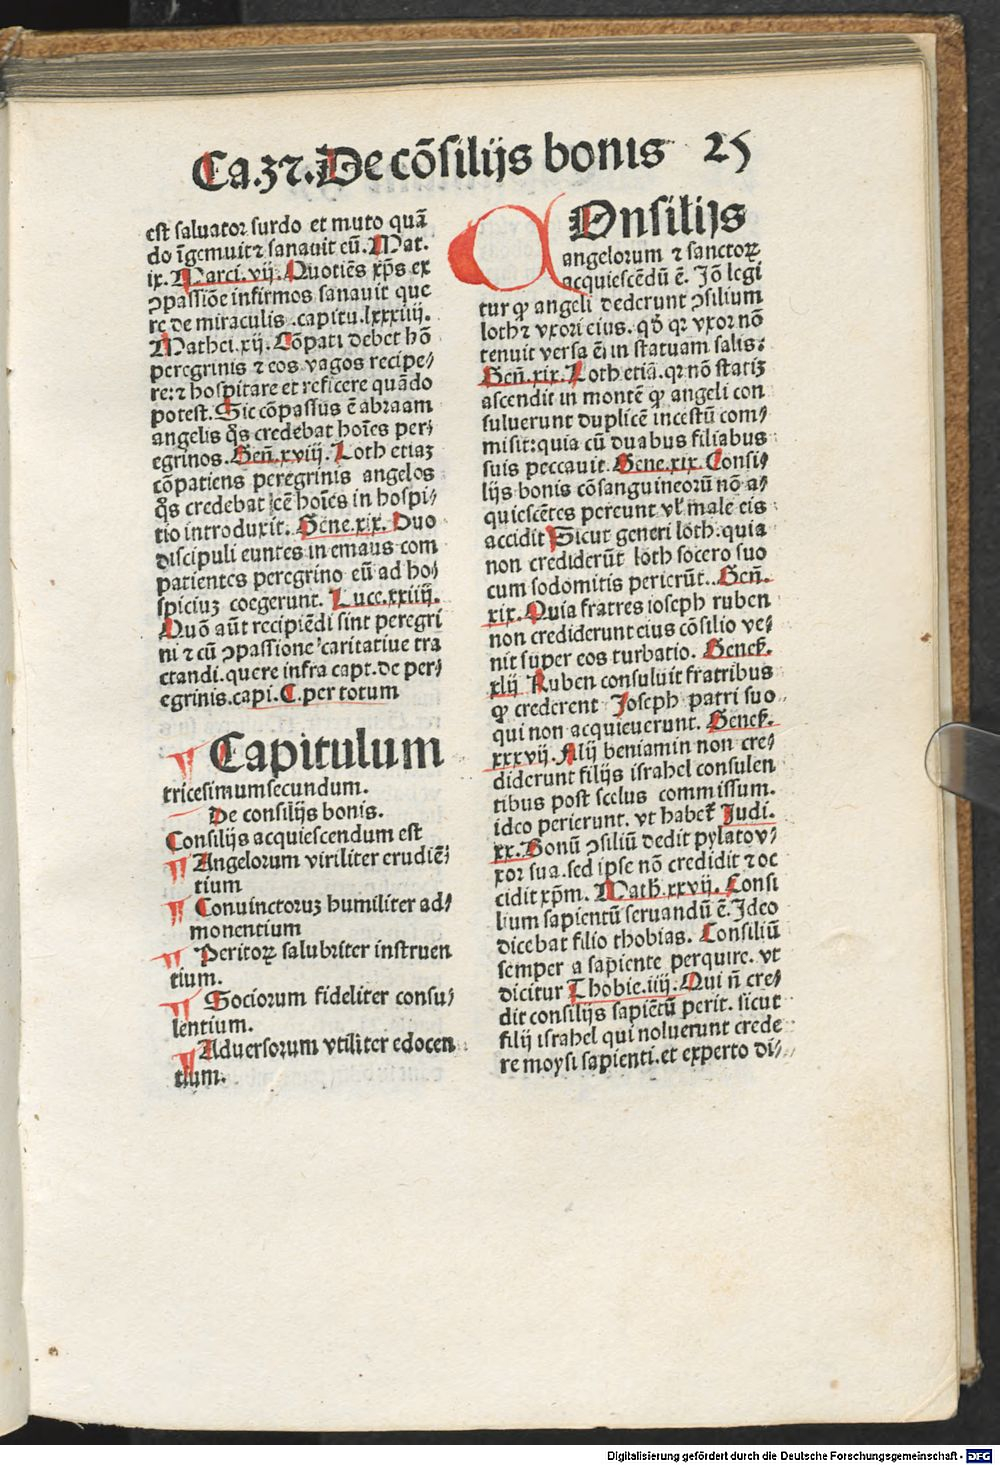 Ca.32. De cōſilijs bonis 25
eſt ſaluator ſurdo et muto quā
do īgemuit ⁊ ſanauit eū. Mat.
ix. Marci. vij. Quotiēs xp̄s ex
ↄpaſſiōe infirmos ſanauit que
re de miraculis .capitu. lxxxiiij.
Mathei. xij. Cōpati debet hō
peregrinis ⁊ eos vagos recipe⸗
re: ⁊ hoſpitare et reficere quādo
poteſt. Sic cōpaſſus ē abraam
angelis q̄s credebat hoīes per⸗
egrinos. Geñ. xviij. Loth etiaz
cōpatiens peregrinis angelos
q̄s credebat eē hoīes in hoſpi⸗
tio introduxit. Gene. xix. Duo
diſcipuli euntes in emaus com
patientes peregrino eū ad ho⸗
ſpiciuz coegerunt. Luce. xxiiij.
Quō aūt recipiēdi ſint peregri
ni ⁊ cū ↄpaſſione caritatiue tra
ctandi. quere infra capt. de per⸗
egrinis. capi. C. per totum
Capitulum
triceſimum ſecundum.
De conſilijs bonis.
Conſilijs acquieſcendum eſt
Angelorum viriliter erudiē⸗
tium
Conuinctoruz humiliter ad⸗
monentium
Peritoꝝ ſalubriter inſtruen
tium.
Sociorum fideliter conſu⸗
lentium.
Aduerſorum vtiliter edocen
tium.
COnſilijs
angelorum ⁊ ſanctoꝝ
acquieſcēdū ē. Jō legi
tur ꝙ angeli dederunt ↄſilium
loth ⁊ vxori eius. qd̄ qꝛ vxor nō
tenuit verſa ē in ſtatuam ſalis:
Geñ. xix. Loth etiā. qꝛ nō ſtatiz
aſcendit in montē ꝙ angeli con
ſuluerunt duplicē inceſtū com⸗
miſit: quia cū duabus filiabus
ſuis peccauit. Gene. xix. Conſi⸗
lijs bonis cōſanguineorū nō a⸗
quieſcētes pereunt vl̄ male eis
accidit Sicut generi loth. quia
non crediderūt loth ſocero ſuo
cum ſodomitis perierūt.. Geñ.
xix. Quia fratres ioſeph ruben
non crediderunt eius cōſilio ve⸗
nit ſuper eos turbatio. Geneẜ.
xlij Ruben conſuluit fratribus
ꝙ crederent Joſeph patri ſuo
qui non acquieuerunt. Geneẜ.
xxxvij. Alij beniamin non cre⸗
diderunt filijs iſrahel conſulen
tibus poſt ſcelus commiſſum.
ideo perierunt. vt habet᷑ Judi.
xx. Bonū ↄſiliū dedit pylato v⸗
xor ſua. ſed ipſe nō credidit ⁊ oc
cidit xp̄m. Math̄. xxvij. Conſi
lium ſapientū ſeruandū ē. Jdeo
dicebat filio thobias. Conſiliū
ſemper a ſapiente perquire. vt
dicitur Thobie. iiij. Qui ñ cre⸗
dit conſilijs ſapiētū perit. ſicut
filij iſrahel qui noluerunt crede
re moyſi ſapienti. et experto di⸗
Digitalisierung gefördert durch die Deutsche Forschungsgemeinschaft - DFG